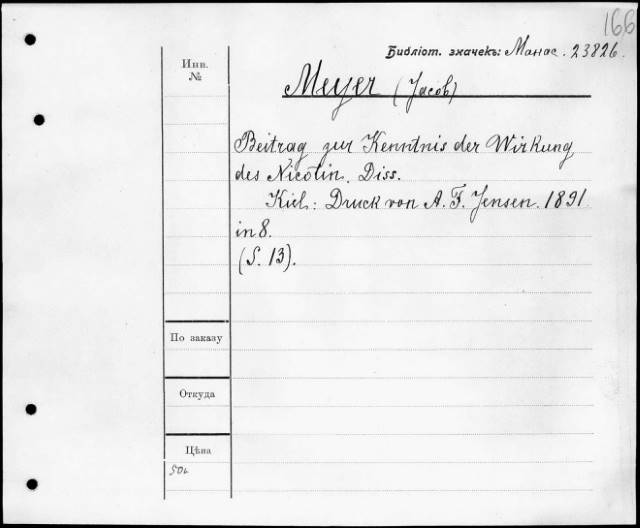 166
Библіот. значекъ: Манас. 23826.
Инв.
№
Meyer (Jacob)
Beitrag zur Kenntnis der Wirkung
des Nicotin. Diss.
Kiel: Druck von A. F. Jensen. 1891.
in 8.
(S. 13).
По заказу
Откуда
Цѣна